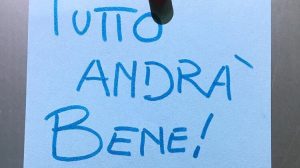 TUTTO
ANDRA`
BENE!